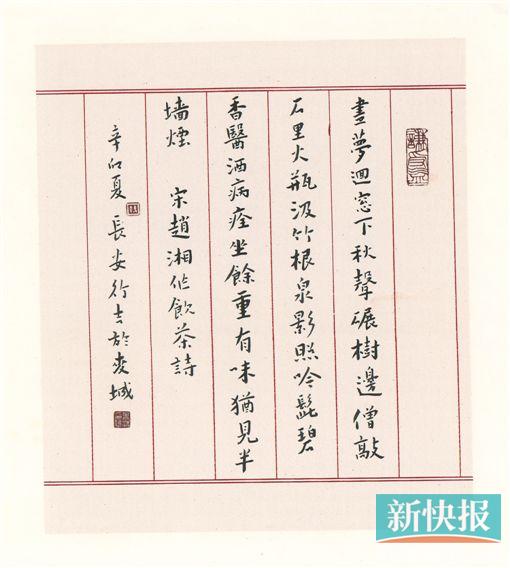 謙受益
晝夢迴窓下秋聲碾樹邊僧敲
石里火瓶汲竹根泉影照吟髭碧
香醫酒病痊坐餘重有味猶見半
墻煙 宋趙湘作飲茶詩
辛卯夏長安行於麦城
新快报